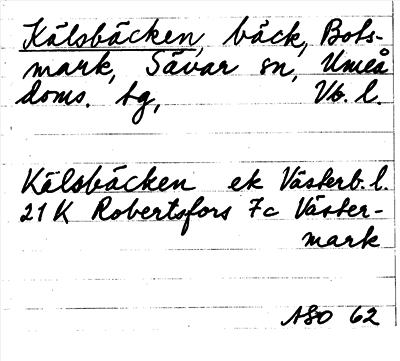 Kälsbäcken, bäck, Bots-
mark, Sävar sn, Umeå
doms. tg, Vb. l.
Kälsbäcken ek Västerb. l.
21 K Robertsfors 7c Väster-
mark
ASO 62